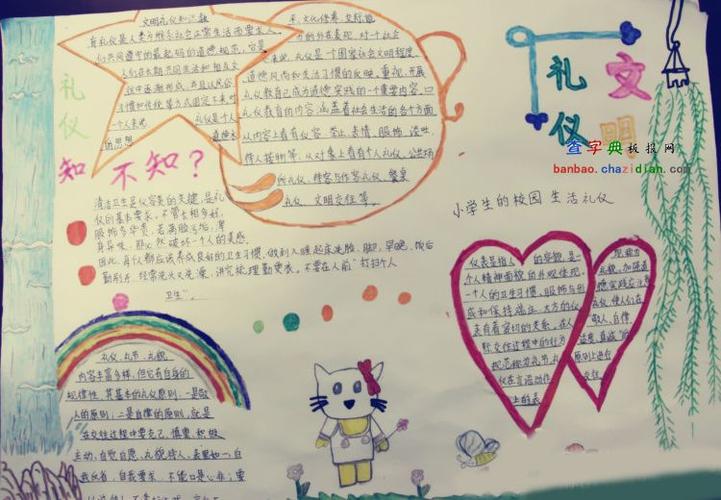 文明
礼仪
查字典板报网
banbao.chazidian.com
文明礼仪知识
礼仪是人类为维系社会正常生活而要求人
们共同遵守的最起码的道德规范，它是
人们在长期共同生活和相互交
往中逐渐形成，并且以风俗
习惯和传统等方式固定下来的
一个人来说
礼仪是个人
的思想
道德水
礼仪
知不知？
文化修养、交际能
力的外在表现，对一个社会
来说，礼仪是一个国家社会文明程度、
道德风尚和生活习惯的反映，重视、开展
礼仪教育已成为道德实践的一个重要内容。
礼仪教育的内容涵盖着社会生活的各个方面
从内容上看有仪容、举止、表情、服饰、谈吐、
待人接物等，从对象上看有个人礼仪、公共场
所礼仪、待客与作客礼仪、餐桌
礼仪、文明交往等。
清洁卫生是仪容美的关键，是礼
仪的基本要求。不管长相多好，
服饰多华贵，若满脸污垢，浑
身异味，那必然破坏一个人的美感。
因此，每个人都应该养成良好的卫生习惯，做到入睡起床洗脸、脚，早晚、饭后
勤刷牙，经常洗头又洗澡，讲究梳理勤更衣。不要在人前"打扫个人
卫生"。
小学生的校园生活礼仪
仪表是指人的容貌，是一
个人精神面貌的外观体现。
一个人的卫生习惯、服饰与形
成和保持端庄、大方的仪
表有着密切的关系。
礼仪、礼节、礼貌
内容丰富多样，但它有自身的
规律性，其基本的礼仪原则：一是敬
人的原则；二是自律的原则，就是
在交往过程中要克己、慎重、积极
主动、自觉自愿、礼貌待人、表里如一，自
我反省，自我要求，不能口是心非；